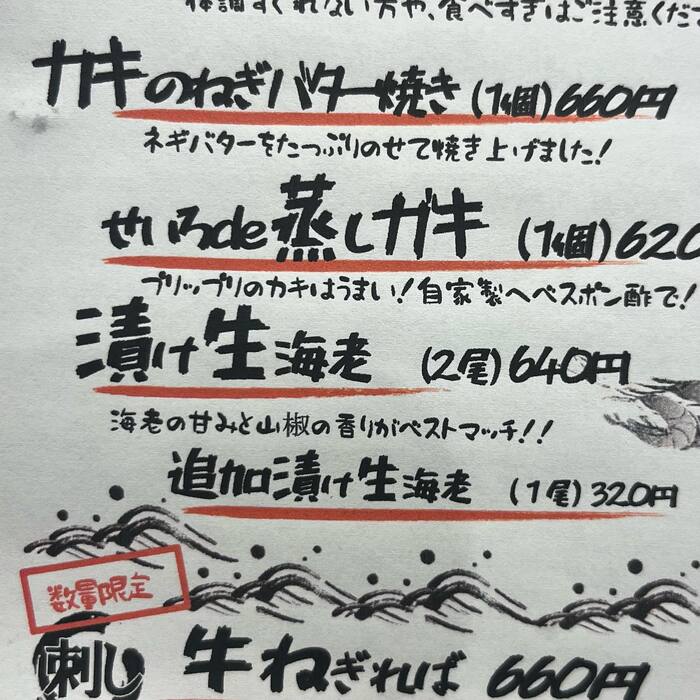 体調すぐれない方や、食べすぎはご注意くださ
ガキのねぎバター焼き (1個) 660円
ネギバターをたっぷりのせて焼き上げました!
せいろde蒸しガキ (1個) 620
プリップリのカキはうまい!自家製ヘベスポン酢で!
漬け生海老 (2尾) 640円
海老の甘みと山椒の香りがベストマッチ!!
追加漬け生海老 (1尾) 320円
数量限定
刺し
牛ねぎれば 660円